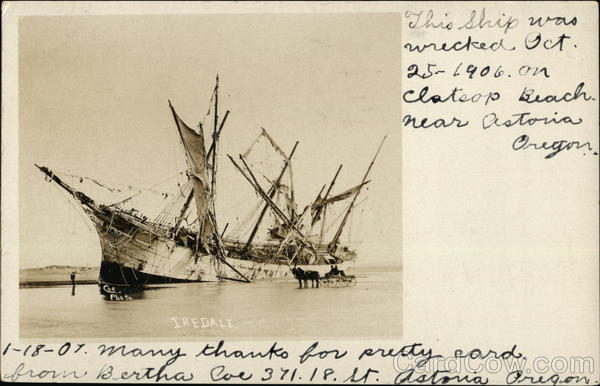 This Ship was
wrecked Oct.
25-1906. on
Clatsop Beach.
near Astoria
Oregon.
Co.
Photo
IREDALE.
1-18-07. Many thanks for pretty card.
from Bertha Coe 371. 18. St. Astoria Oregon.
CardCow.com